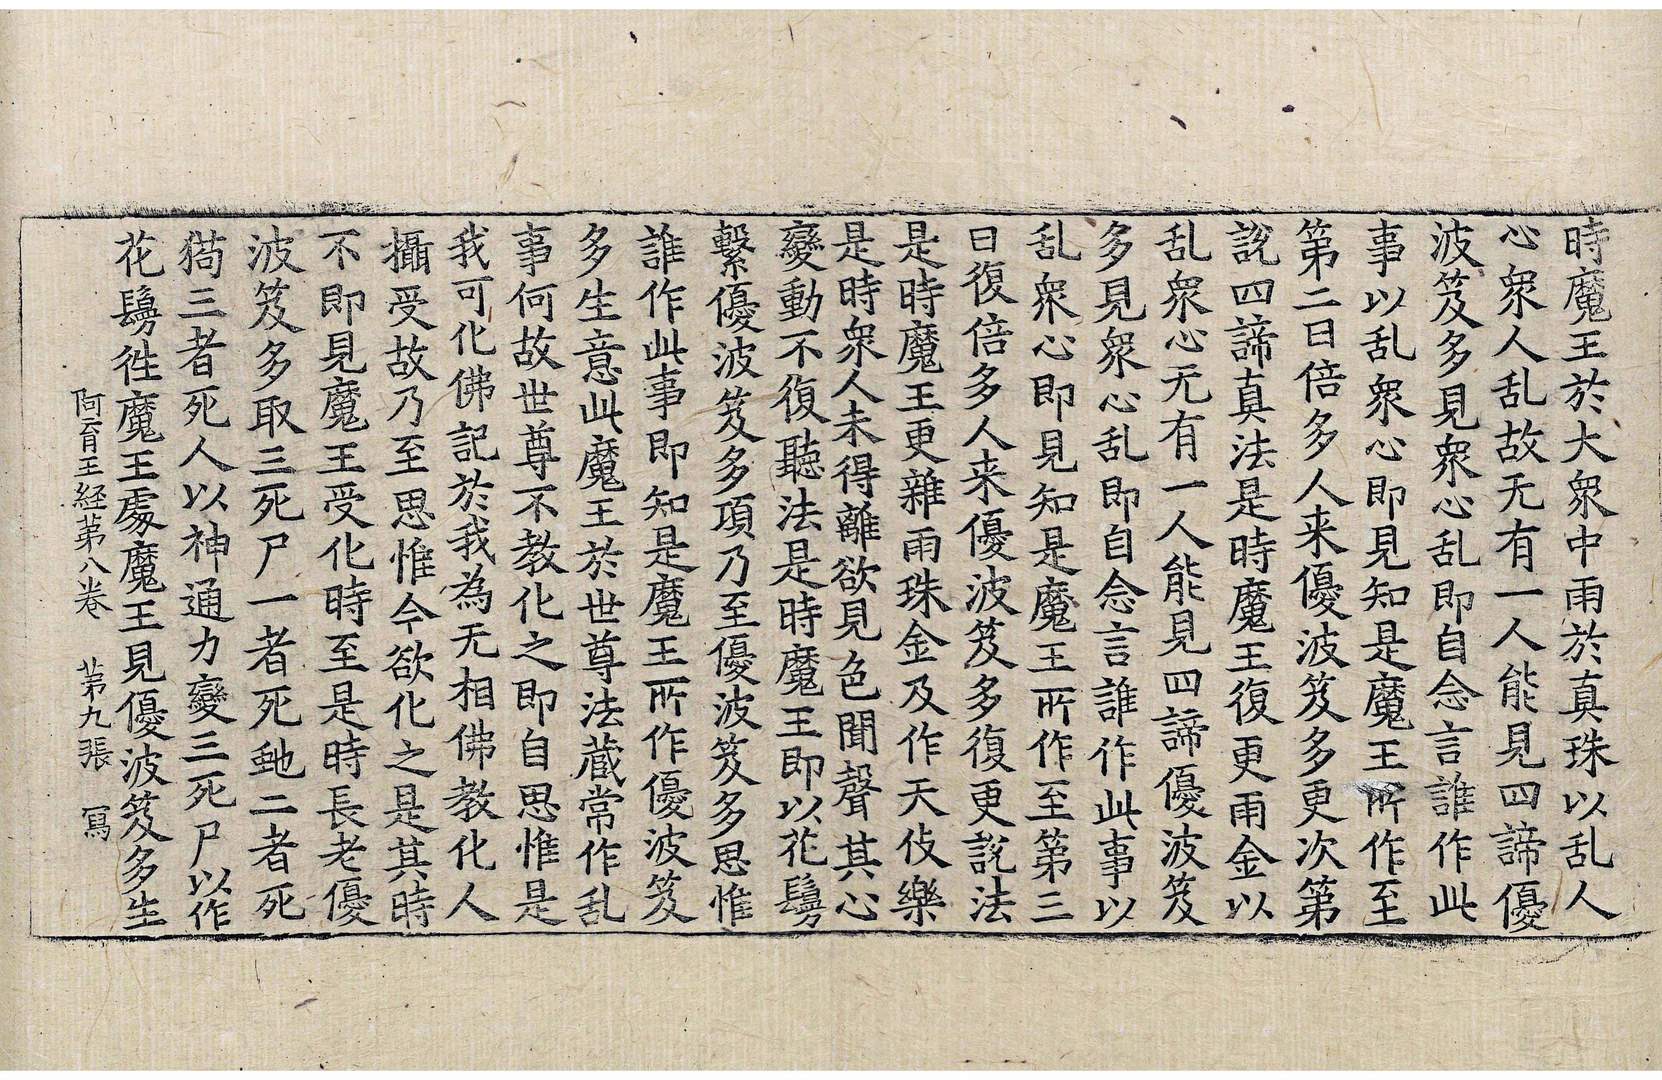 時魔王於大衆中雨於真珠以乱人
心衆人乱故无有一人能見四諦優
波笈多見衆心乱即自念言誰作此
事以乱衆心即見知是魔王所作至
第二日倍多人来優波笈多更次第
說四諦真法是時魔王復更雨金以
乱衆心无有一人能見四諦優波笈
多見衆心乱即自念言誰作此事以
乱衆心即見知是魔王所作至第三
日復倍多人来優波笈多復更說法
是時魔王更雜雨珠金及作天伎樂
是時衆人未得離欲見色聞聲其心
變動不復聽法是時魔王即以花鬘
繫優波笈多項乃至優波笈多思惟
誰作此事即知是魔王所作優波笈
多生意此魔王於世尊法蔵常作乱
事何故世尊不教化之即自思惟是
我可化佛記於我為无相佛教化人
攝受故乃至思惟今欲化之是其時
不即見魔王受化時至是時長老優
波笈多取三死尸一者死虵二者死
猗三者死人以神通力變三死尸以作
花鬘徃魔王處魔王見優波笈多生
阿育王経第八卷 第九張 寫